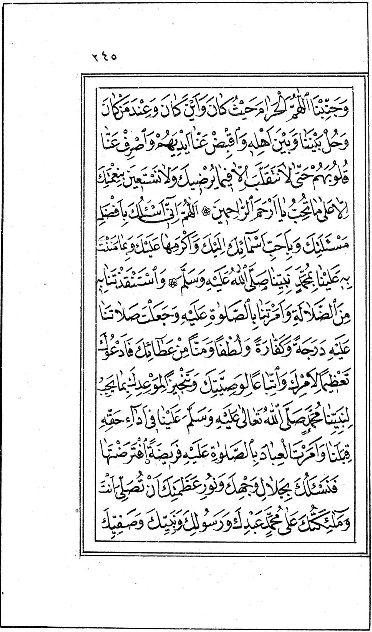 ٢٤٥
وَجَنِّبْنَا اللّٰهُمَّ الْحَرَامَ حَيْثُ كَانَ وَاَيْنَ كَانَ وَعِنْدَ مَنْ كَانَ
وَحُلْ بَيْنَنَا وَبَيْنَ اَهْلِهِ وَاقْبِضْ عَنَّا اَيْدِيَهُمْ وَاصْرِفْ عَنَّا
قُلُوبَهُمْ حَتّٰى لَا نَتَقَلَّبَ اِلَّا فِيمَا يُرْضِيكَ وَلَا نَسْتَعِينَ بِنِعْمَتِكَ
اِلَّا عَلٰى مَا تُحِبُّ يَا اَرْحَمَ الرَّاحِمِينَ ۞ اَللّٰهُمَّ اِنِّى اَسْئَلُكَ بِاَفْضَلِ
مَسْئَلَتِكَ وَبِاَحَبِّ اَسْمَائِكَ اِلَيْكَ وَاَكْرَمِهَا عَلَيْكَ وَبِمَا مَنَنْتَ
بِهِ عَلَيْنَا بِمُحَمَّدٍ نَبِيِّنَا صَلَّى اللّٰهُ عَلَيْهِ وَسَلَّمَ ۞ وَاسْتَنْقَذْتَنَا بِهِ
مِنَ الضَّلَالَةِ وَاَمَرْتَنَا بِالصَّلٰوةِ عَلَيْهِ وَجَعَلْتَ صَلَاتَنَا
عَلَيْهِ دَرَجَةً وَكَفَّارَةً وَلُطْفًا وَمَنًّا مِنْ عَطَائِكَ فَاَدْعُوكَ
تَعْظِيمًا لِاَمْرِكَ وَاتِّبَاعًا لِوَصِيَّتِكَ وَتَنَجُّزًا لِمَوْعِدِكَ بِمَا يَجِبُ
لِنَبِيِّنَا مُحَمَّدٍ صَلَّى اللّٰهُ تَعَالٰى عَلَيْهِ وَسَلَّمَ عَلَيْنَا فِى اَدَاءِ حَقِّهِ
قِبَلَنَا وَاَمَرْتَ الْعِبَادَ بِالصَّلٰوةِ عَلَيْهِ فَرِيضَةً اِفْتَرَضْتَهَا
فَنَسْئَلُكَ بِجَلَالِ وَجْهِكَ وَنُورِ عَظَمَتِكَ اَنْ تُصَلِّىَ اَنْتَ
وَمَلٰئِكَتُكَ عَلٰى مُحَمَّدٍ عَبْدِكَ وَرَسُولِكَ وَنَبِيِّكَ وَصَفِيِّكَ